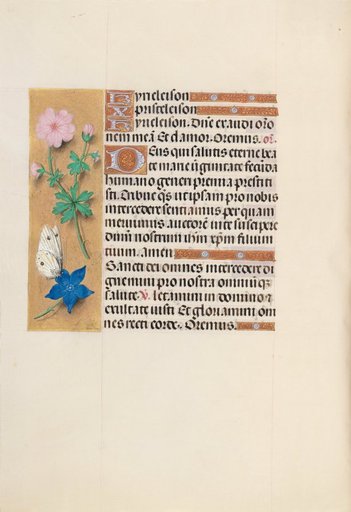 Kyrieleison
Xpisteleison
Kyrieleison. Dñe exaudi orõ
nem meã Et clamor. Oremus. or.
Deus qui salutis eterne bea
te marie virginitate fecũda
humano generi premia prestiti
sti. Tribue q̃s ut ipsam pro nobis
intercedere sentiamus per quam
meruimus. auctorẽ vite suscipere
dñm nostrum ihm xpm filium
tuum. amen
Sancti dei omnes intercedere di
gnemini pro nostra omniũ q̃
salute. V. Letamini in domino et
exultate iusti Et gloriamini om
nes recti corde. Oremus.